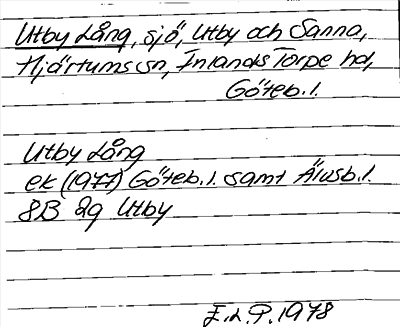 Utby Lång, sjö, Utby och Sanna,
Hjärtums sn, Inlands Torpe hd,
Göteb. l.
Utby Lång
ek (1977) Göteb. l. samt Älvsb. l.
8B 2g Utby
E.L.P. 1978